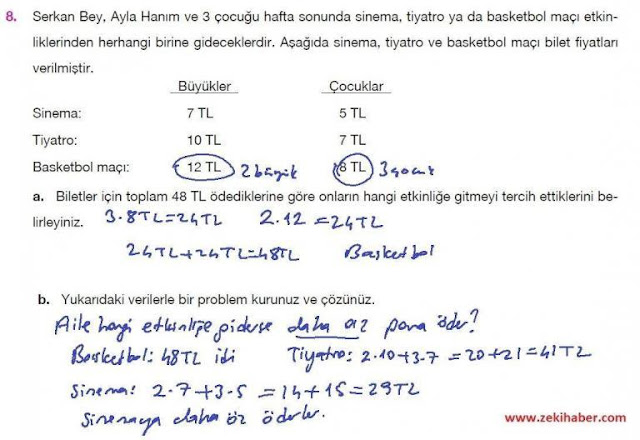 8. Serkan Bey, Ayla Hanım ve 3 çocuğu hafta sonunda sinema, tiyatro ya da basketbol maçı etkin-
liklerinden herhangi birine gideceklerdir. Aşağıda sinema, tiyatro ve basketbol maçı bilet fiyatları
verilmiştir.
Büyükler Çocuklar
Sinema: 7 TL 5 TL
Tiyatro: 10 TL 7 TL
Basketbol maçı: 12 TL 2 büyük 8 TL 3 çocuk
a. Biletler için toplam 48 TL ödediklerine göre onların hangi etkinliğe gitmeyi tercih ettiklerini be-
lirleyiniz. 3.8TL=24TL 2.12=24TL
24TL+24TL=48TL Basketbol
b. Yukarıdaki verilerle bir problem kurunuz ve çözünüz.
Aile hangi etkinliğe giderse daha az para öder?
Basketbol: 48TL idi Tiyatro: 2.10+3.7=20+21=41TL
Sinema: 2.7+3.5=14+15=29TL
Sinemaya daha az öderler.
www.zekihaber.com